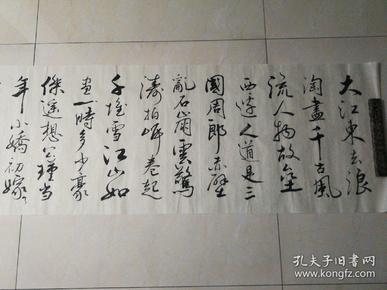 大江東去浪
淘盡千古風
流人物故壘
西邊人道是三
國周郎赤壁
亂石崩雲驚
濤拍岸卷起
千堆雪江山如
畫一時多少豪
傑遙想公瑾當
年小嬌初嫁
孔夫子旧书网